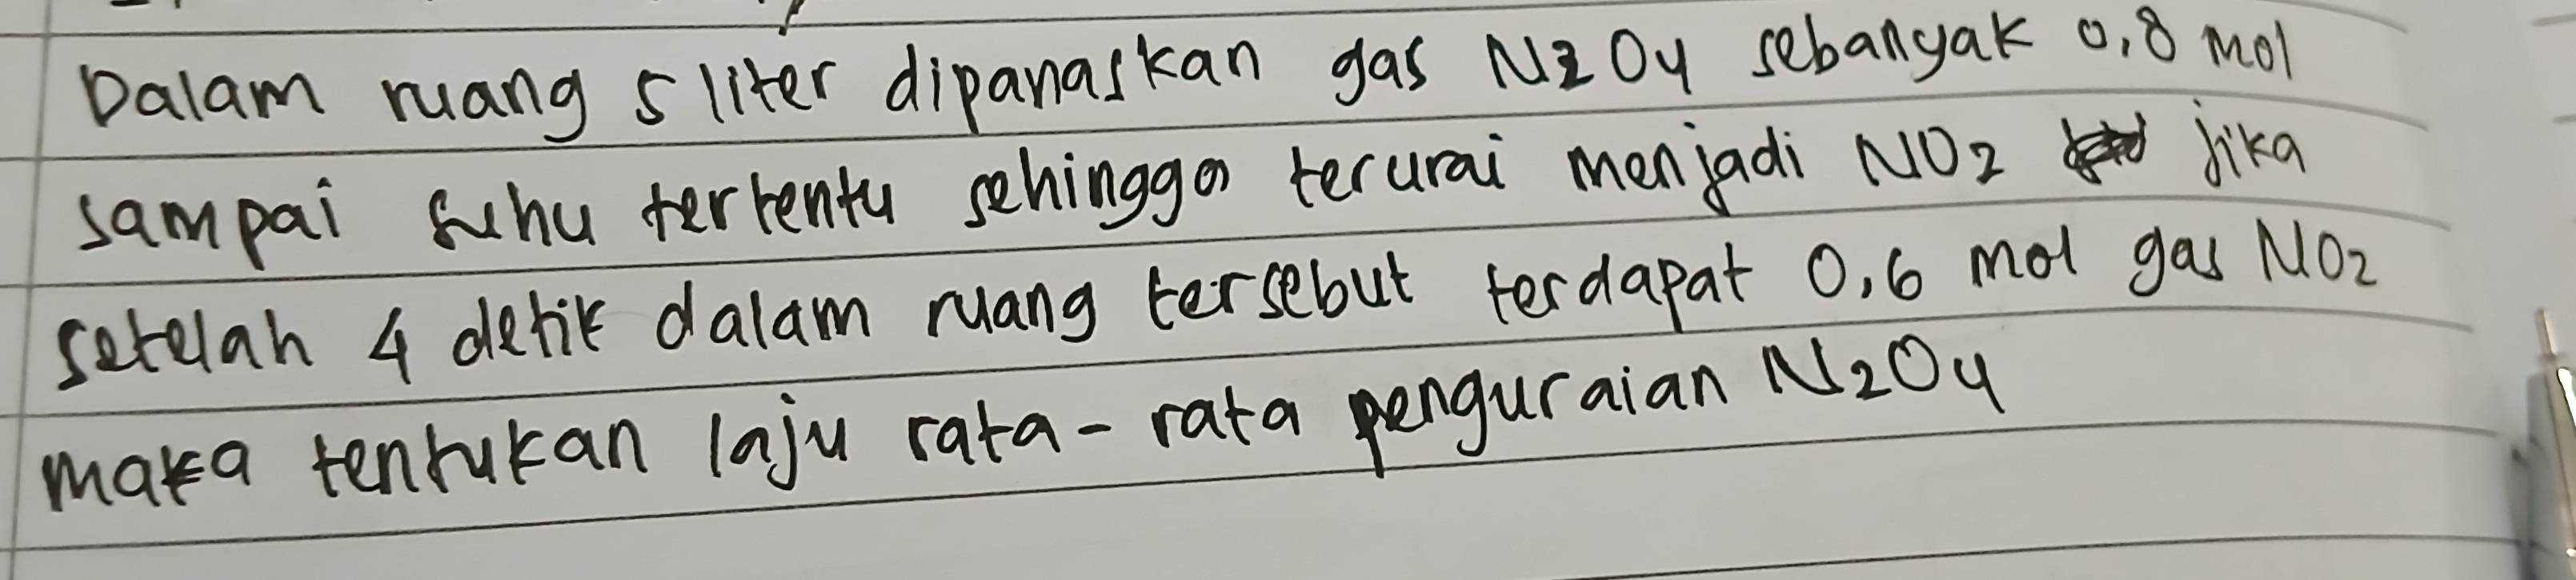 Dalam ruang 5 liter dipanaskan gas N2O4 sebanyak 0,8 mol
sampai suhu tertentu sehingga terurai menjadi NO2 jika
setelah 4 detik dalam ruang tersebut terdapat 0,6 mol gas NO2
maka tentukan laju rata-rata penguraian N2O4